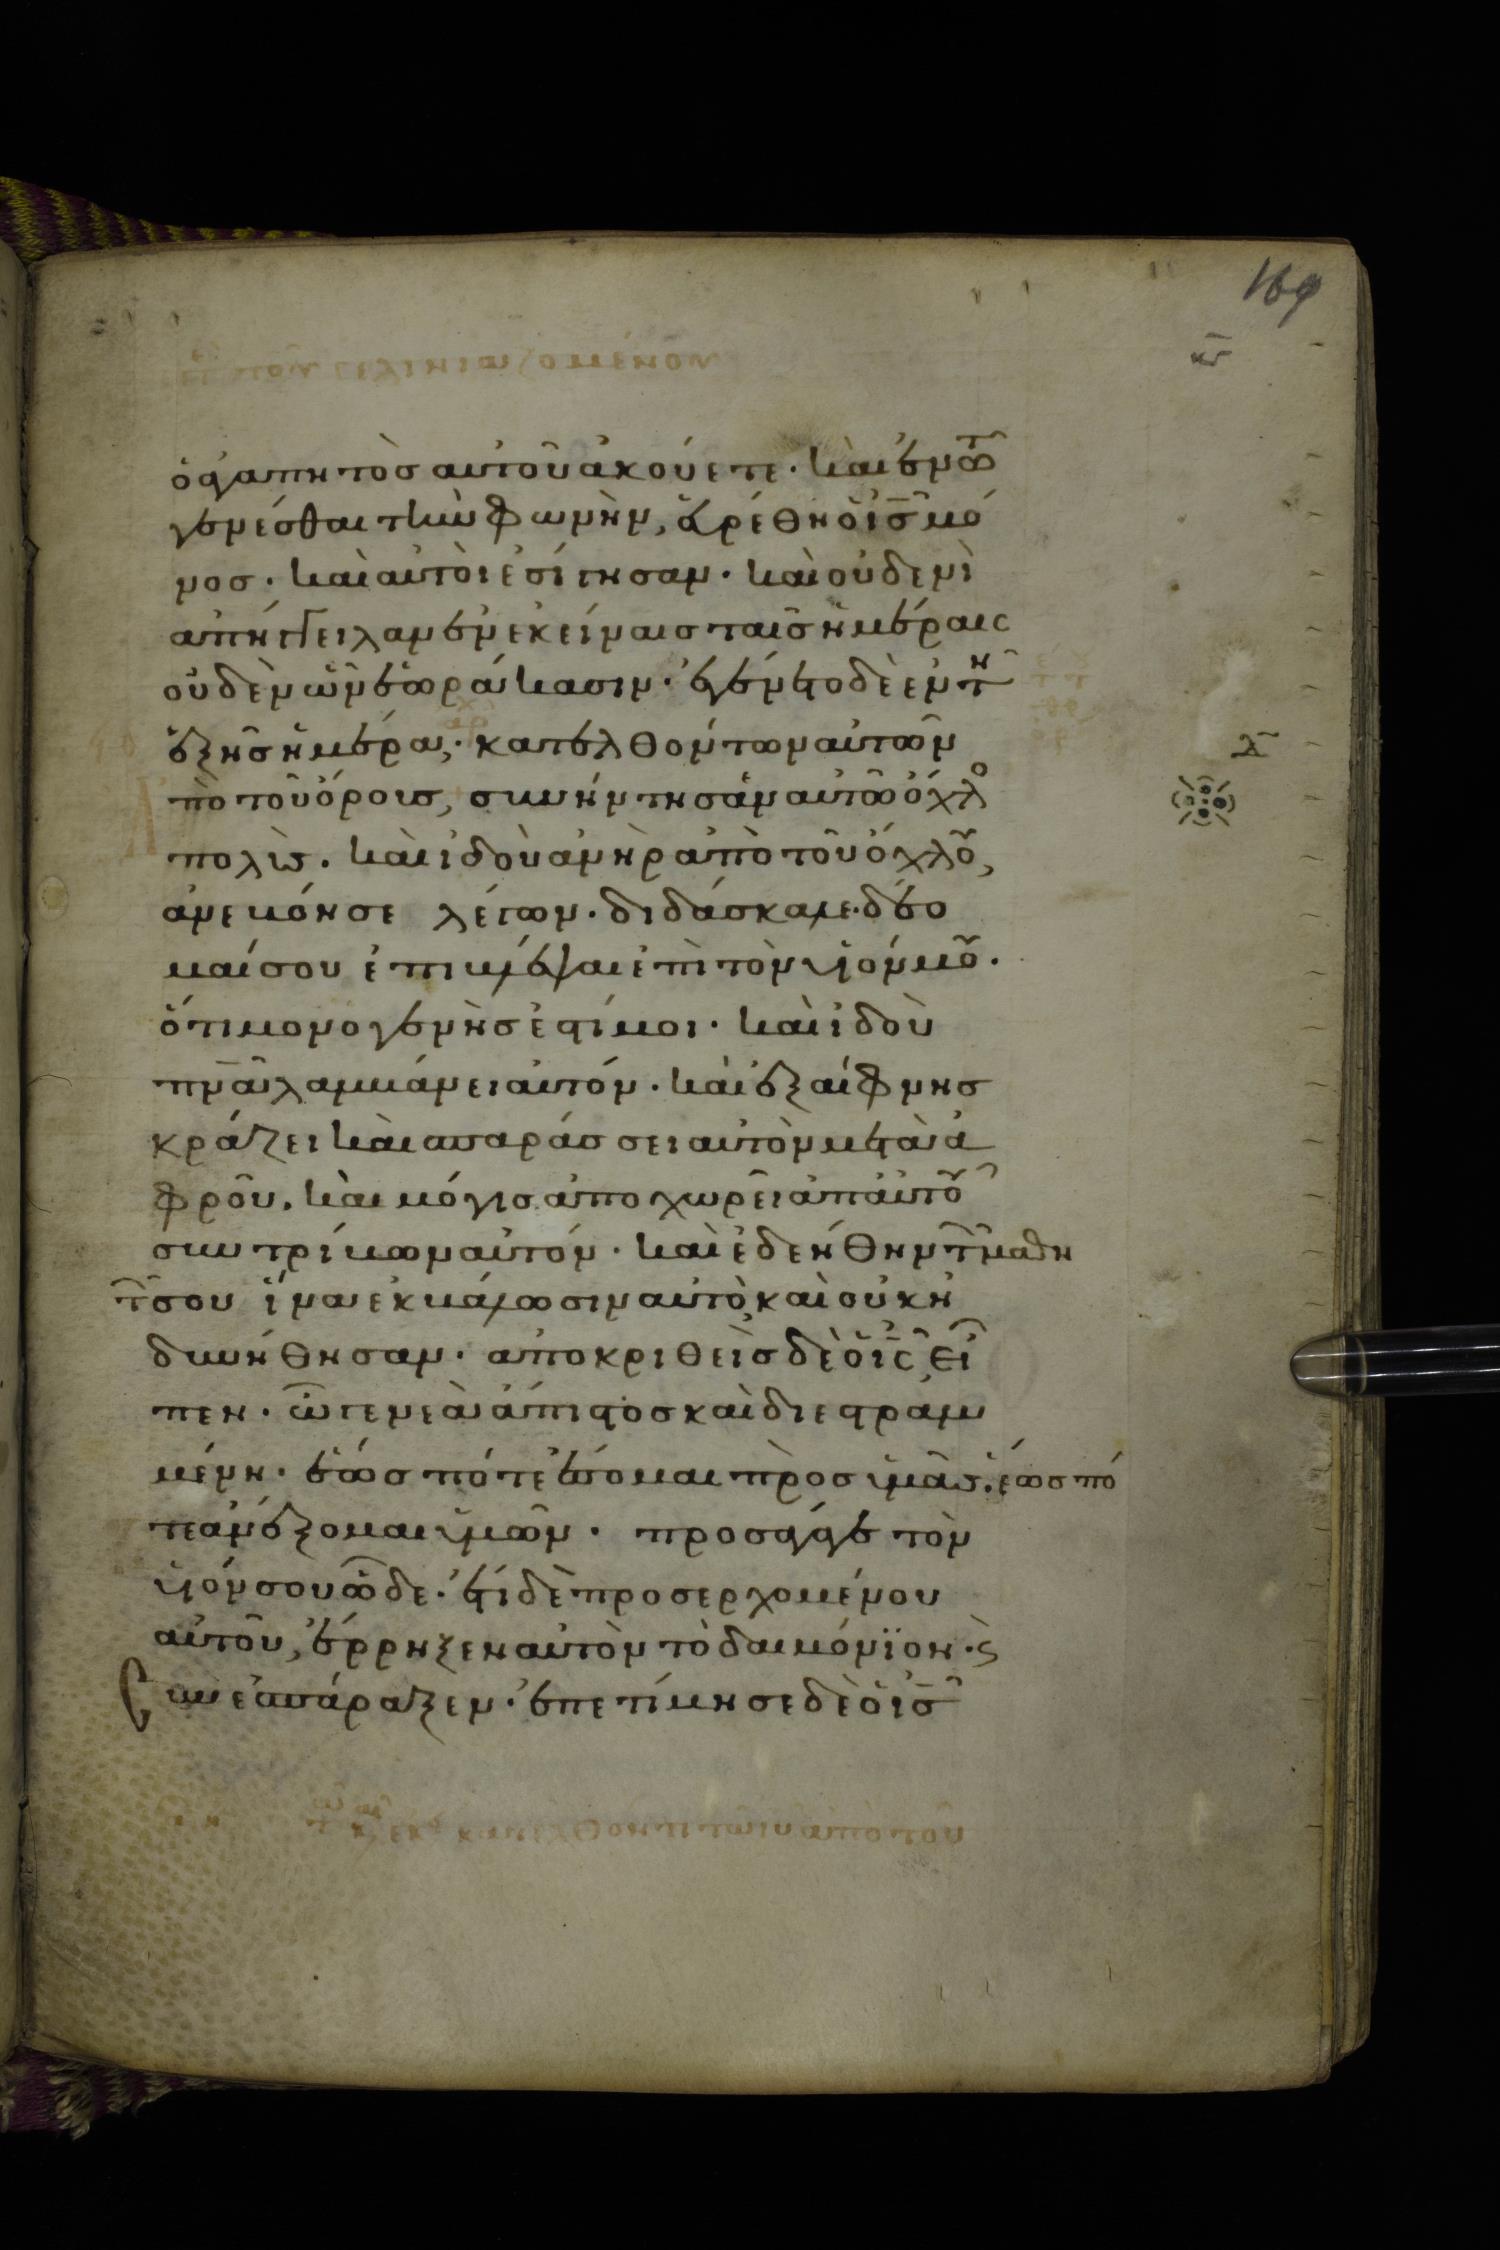 169
κϛ
ὁ ἀγαπητὸσ αὐτοῦ ἀκούετε · καὶ ἐν τῶ
γενέσθαι τὴν φωνὴν, εὑρέθη ὁ ι̅σ̅ μό
νοσ · καὶ αὐτοὶ ἐσίγησαν · καὶ οὐδενὶ
απήγγειλαν ἐν ἐκείναισ ταῖσ ἡμέραις
οὐδὲν ὧν ἑωράκασιν · ἐγένετο δὲ ἐν τῆ
ἑξῆσ ἡμέρα, · κατελθόντων αὐτῶν
ἀπὸ τοῦ ὄρουσ, συνήντησὰν αὐτῶ ὄχλοσ
πολὺσ · καὶ ἰδοὺ ἀνὴρ ἀπὸ τοῦ ὄχλου,
ἀνεβόησε λέγων · διδάσκαλε · δέο
μαί σου ἐπιβλέψαι ἐπὶ τὸν υἱόν μου ·
ὅτι μονογενὴσ ἐστί μοι · καὶ ἰδοὺ
π̅ν̅α̅ λαμβάνει αὐτόν · καὶ ἐξαίφνησ
κράζει καὶ σπαράσσει αὐτὸν μετὰ ἀ
φροῦ · καὶ μόγισ ἀποχωρεῖ ἀπ αὐτοῦ
συντρίβων αὐτόν · καὶ ἐδεήθην τῶν μαθη
τῶν σου ἵνα ἐκβάλωσιν αὐτὸ, καὶ οὐκ ἠ
δυνήθησαν · ἀποκριθεὶσ δὲ ὁ ι̅ς̅ εἶ
πεν · ὦ γενεὰ ἄπιστοσ καὶ διεστραμ
μένη · ἕωσ πότε ἔσομαι πρὸσ ὑμᾶσ · ἕωσ πό
τε ἀνέξομαι ὑμῶν · προσάγαγε τὸν
υἱόν σου ὧδε · ἔτι δὲ προσερχομένου
αὐτοῦ, ἔρρηξεν αὐτὸν τὸ δαιμόνϊον · ϗ
συνεσπάραξεν · ἐπετίμησε δὲ ὁ ι̅σ̅